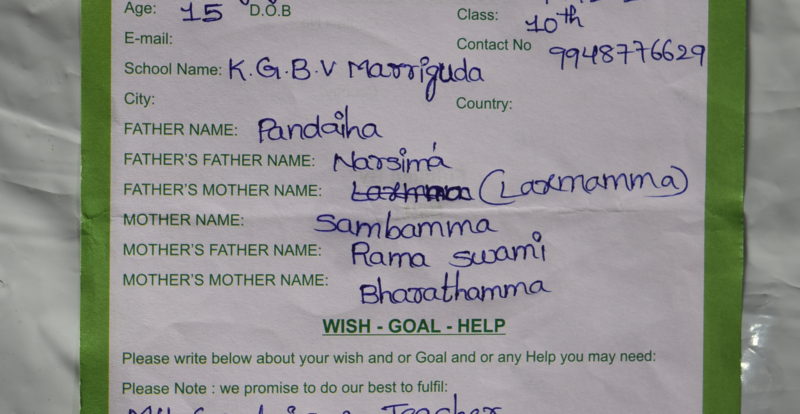 Age: 15 D.O.B
Class: 10th
E-mail:
Contact No 9948776629
School Name: K.G.B.V Marriguda
City:
Country:
FATHER NAME: Pandaiha
FATHER'S FATHER NAME: Narsima
FATHER'S MOTHER NAME: (Laxmamma)
MOTHER NAME: Sambamma
MOTHER'S FATHER NAME: Rama swami
MOTHER'S MOTHER NAME: Bharathamma
WISH - GOAL - HELP
Please write below about your wish and or Goal and or any Help you may need:
Please Note : we promise to do our best to fulfil:
My Teacher